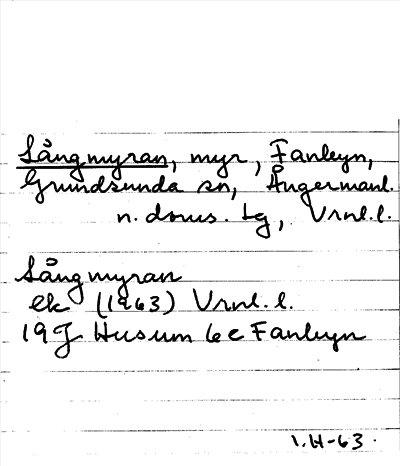 Långmyran, myr, Fanbyn,
Grundsunda sn, Ångermanl.
n. doms. tg, Vrnl. l.
Långmyran
ek (1963) Vrnl. l.
19J Husum 6c Fanbyn
I.H-63.